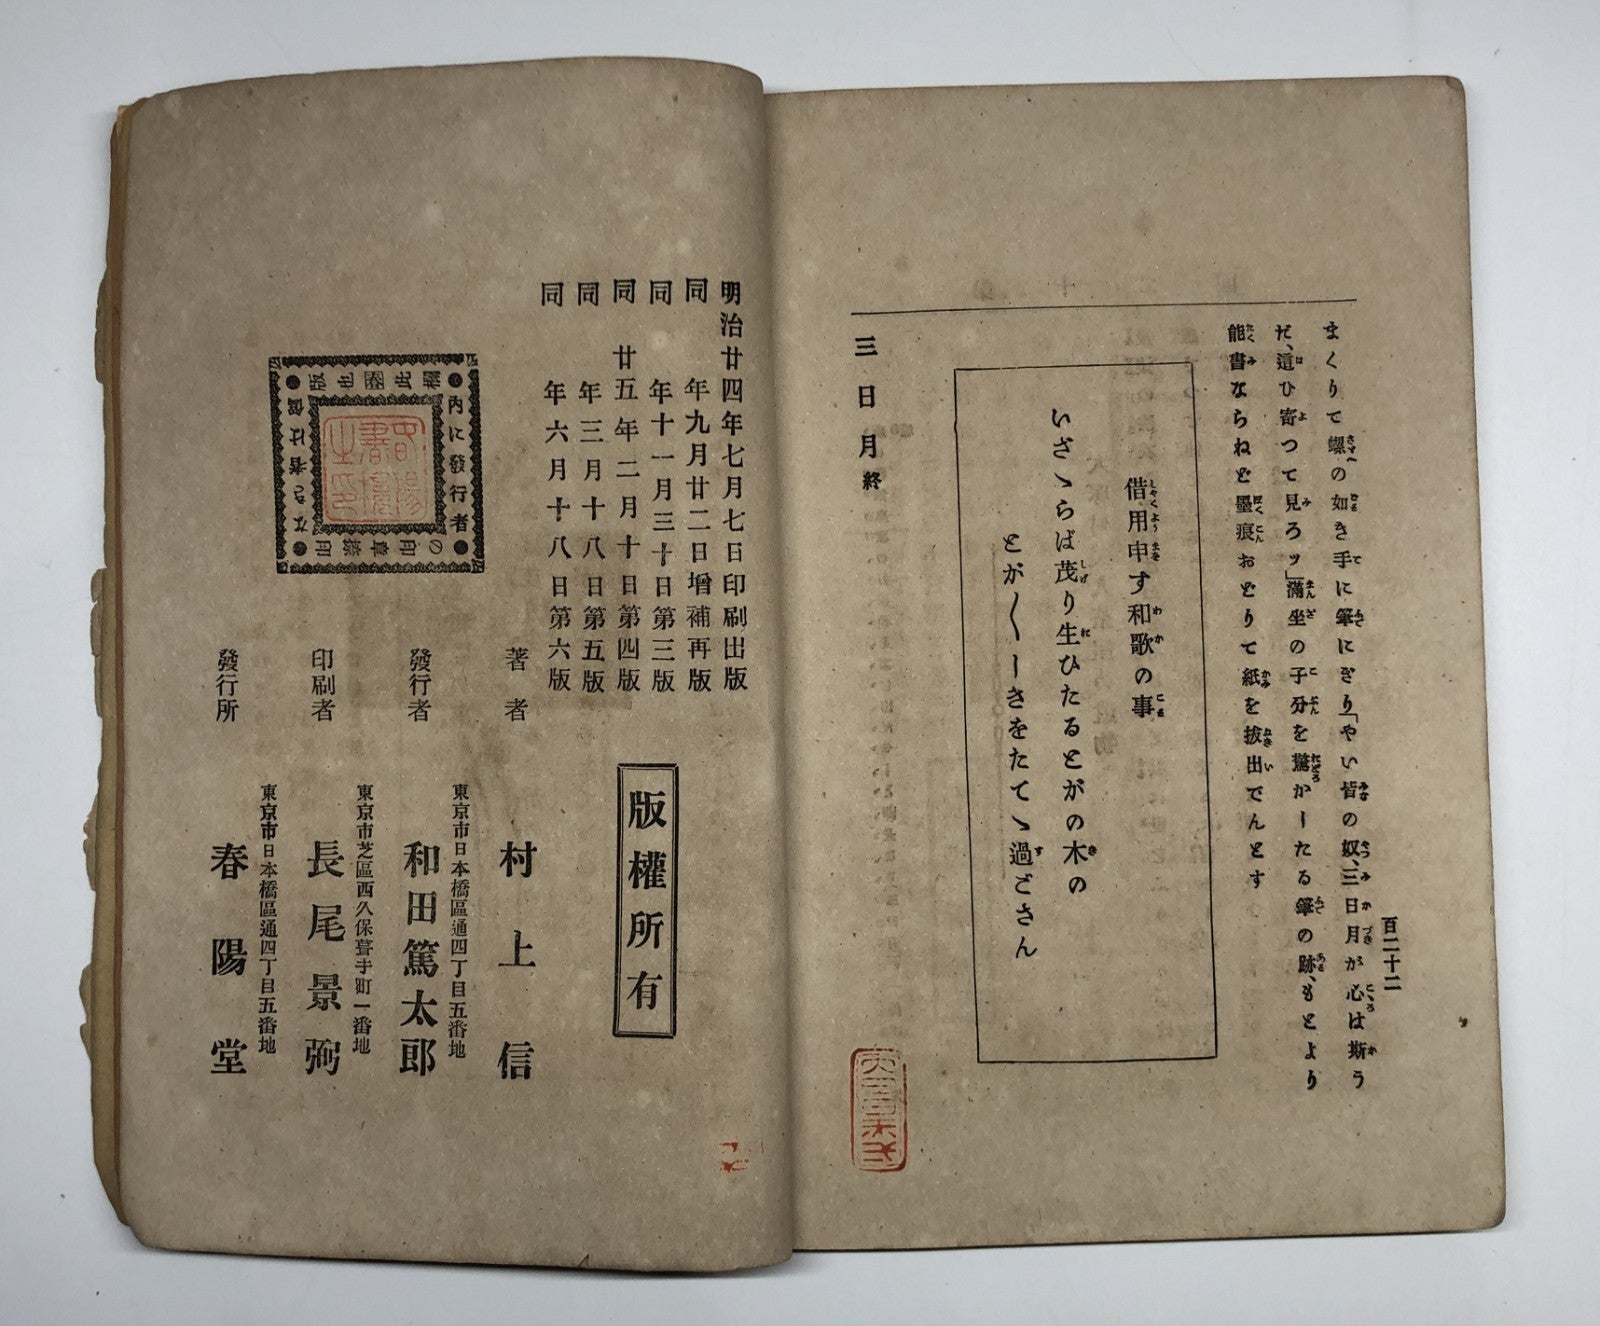 百二十二
まくりて螺の如き手に筆にぎり「やい皆の奴、三日月が心は斯う
だ、這ひ寄つて見ろッ」滿坐の子分を驚かしたる筆の跡、もとより
能書ならねど墨痕おどりて紙を拔出でんとす
借用申す和歌の事
いざゝらば茂り生ひたるとがの木の
とが〳〵しさをたてゝ過ごさん
三日月終
明治廿四年七月七日印刷出版
同年九月廿二日增補再版
同年十一月三十日第三版
同廿五年二月十日第四版
同年三月十八日第五版
同年六月十八日第六版
版權所有
著者 村上信
東京市日本橋區通四丁目五番地
發行者 和田篤太郎
東京市芝區西久保葺手町一番地
印刷者 長尾景弼
東京市日本橋區通四丁目五番地
發行所 春陽堂
內に發行者
の印章捺印